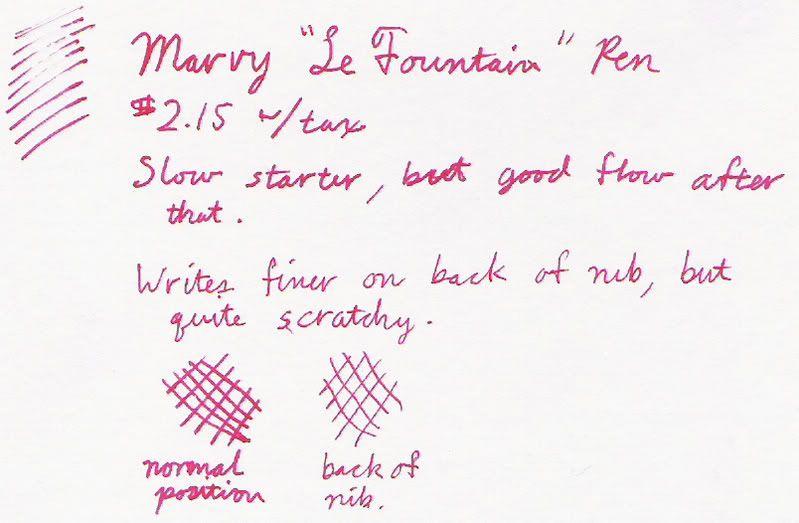 Marvy "Le Fountain" Pen
$2.15 w/tax
Slow starter, but good flow after
that.
Writes finer on back of nib, but
quite scratchy.
normal
position
back of
nib.